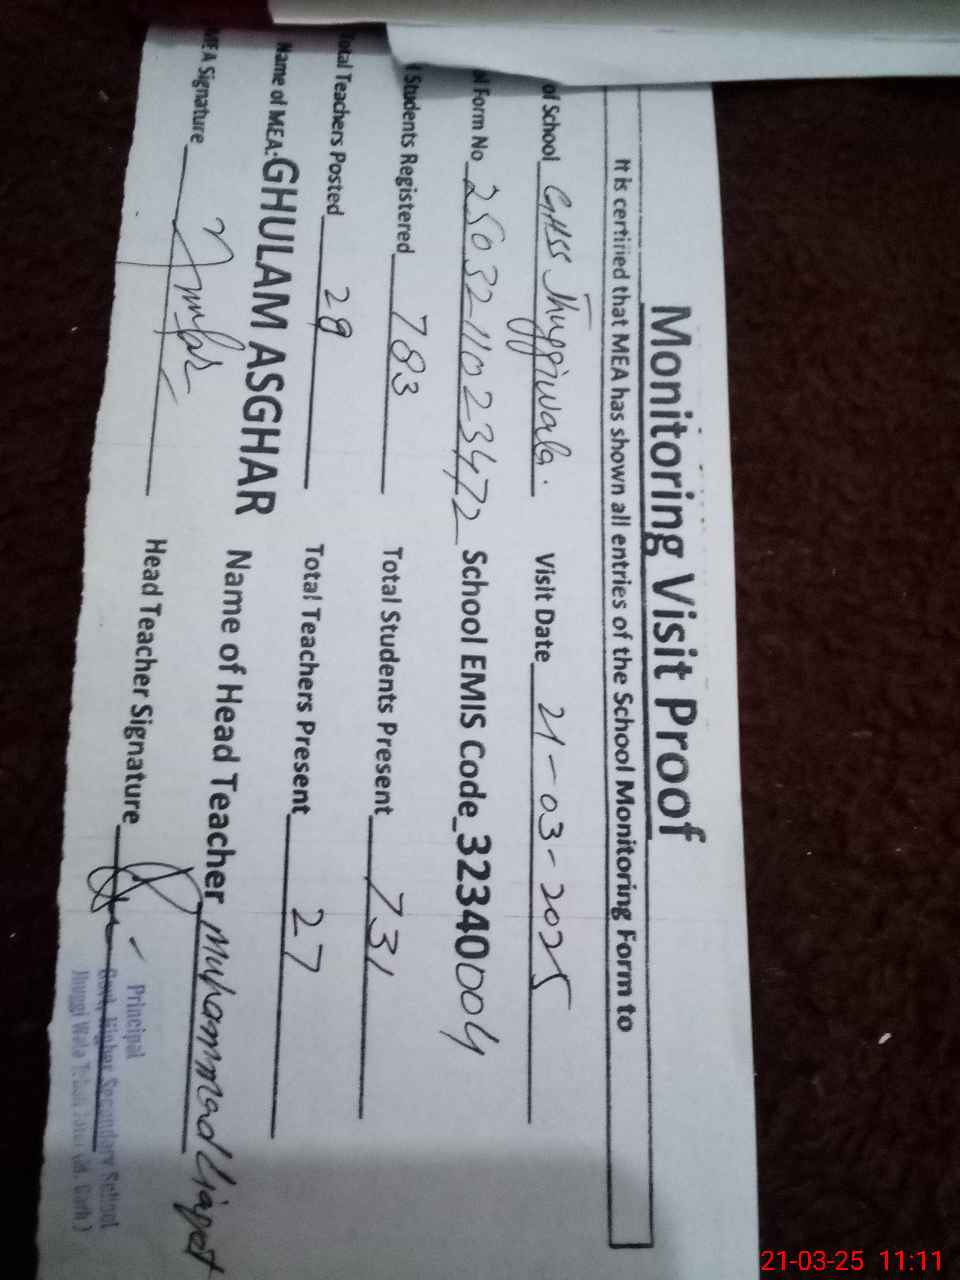 Monitoring Visit Proof
It is certified that MEA has shown all entries of the School Monitoring Form to
of School GHSS Jhuggiwala. Visit Date 21-03-2025
Form No 2503211023472 School EMIS Code 32340004
Students Registered 783 Total Students Present 731
Total Teachers Posted 28 Total Teachers Present 27
Name of MEA: GHULAM ASGHAR Name of Head Teacher Muhammad Liaqat
MEA Signature Head Teacher Signature
Principal
Govt. Higher Secondary School
Jhuggi Wala
21-03-25 11:11